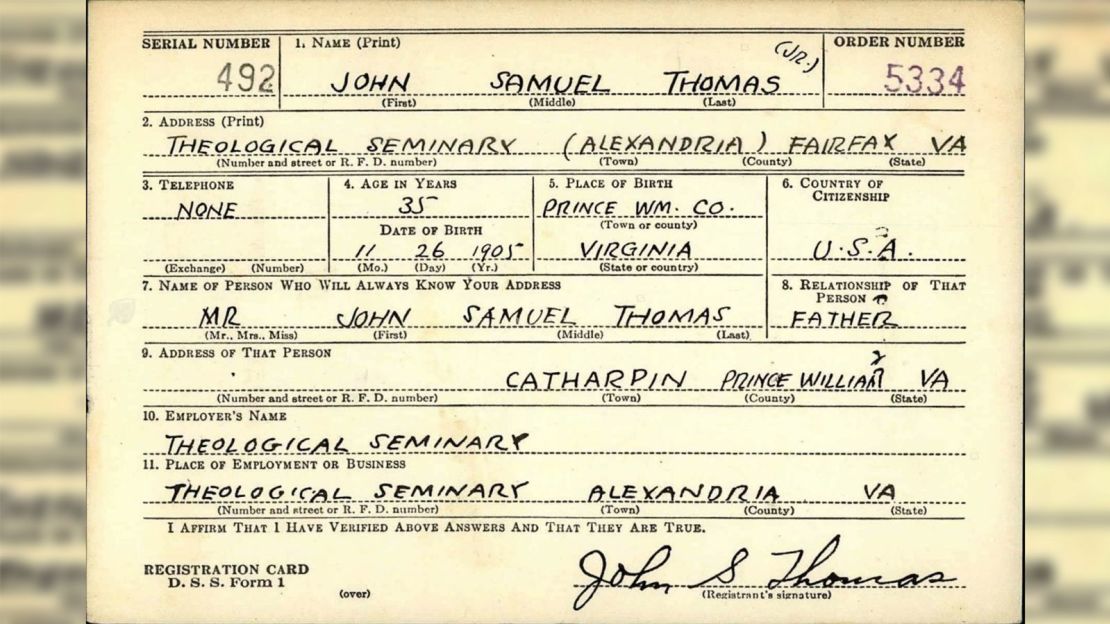 SERIAL NUMBER 1. NAME (Print) ORDER NUMBER
492 JOHN SAMUEL THOMAS (JR.) 5334
(First) (Middle) (Last)
2. ADDRESS (Print)
THEOLOGICAL SEMINARY (ALEXANDRIA) FAIRFAX VA
(Number and street or R. F. D. number) (Town) (County) (State)
3. TELEPHONE 4. AGE IN YEARS 5. PLACE OF BIRTH 6. COUNTRY OF CITIZENSHIP
NONE 35 PRINCE WM. CO.
DATE OF BIRTH (Town or county)
11 26 1905 VIRGINIA U.S.A.
(Exchange) (Number) (Mo.) (Day) (Yr.) (State or country)
7. NAME OF PERSON WHO WILL ALWAYS KNOW YOUR ADDRESS 8. RELATIONSHIP OF THAT PERSON
MR JOHN SAMUEL THOMAS FATHER
(Mr., Mrs., Miss) (First) (Middle) (Last)
9. ADDRESS OF THAT PERSON
CATHARPIN PRINCE WILLIAM VA
(Number and street or R. F. D. number) (Town) (County) (State)
10. EMPLOYER'S NAME
THEOLOGICAL SEMINARY
11. PLACE OF EMPLOYMENT OR BUSINESS
THEOLOGICAL SEMINARY ALEXANDRIA VA
(Number and street or R. F. D. number) (Town) (County) (State)
I AFFIRM THAT I HAVE VERIFIED ABOVE ANSWERS AND THAT THEY ARE TRUE.
REGISTRATION CARD
D. S. S. Form 1
(over)
John S Thomas
(Registrant's signature)